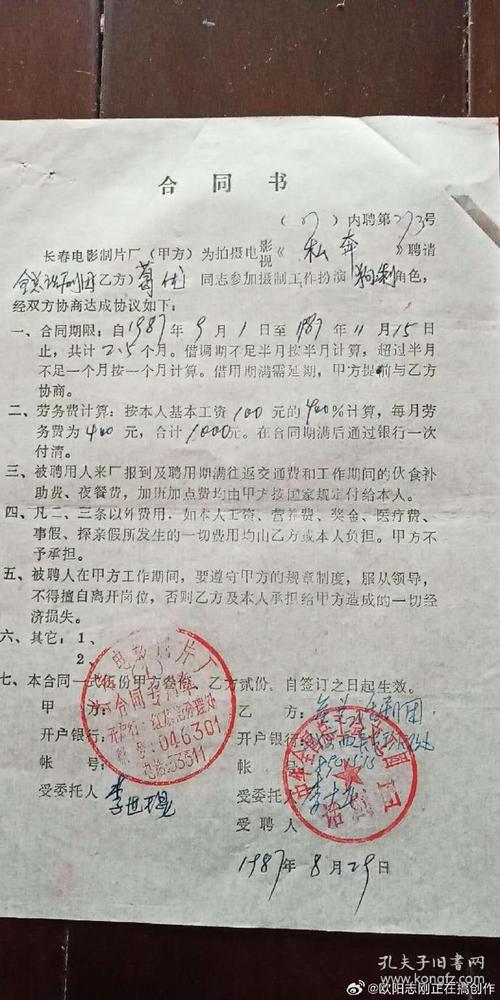 合同书
(87)内聘第273号
长春电影制片厂(甲方)为拍摄电影视《私奔》聘请
全总话剧团(乙方)葛优同志参加摄制工作扮演狗剩角色,
经双方协商达成协议如下:
一、合同期限:自1987年9月1日至1987年11月15日
止,共计2.5个月。借调期不足半月按半月计算,超过半月
不足一个月按一个月计算。借用期满需延期,甲方提前与乙方
协商。
二、劳务费计算:按本人基本工资100元的400%计算,每月劳
务费为400元,合计1000元。在合同期满后通过银行一次
付清。
三、被聘用人来厂报到及聘用期满往返交通费和工作期间的伙食补
助费、夜餐费,加班加点费均由甲方按国家规定付给本人。
四、凡二、三条以外费用,如本人工资、营养费、奖金、医疗费、
事假、探亲假所发生的一切费用均由乙方或本人负担。甲方不
予承担。
五、被聘人在甲方工作期间,要遵守甲方的规章制度,服从领导,
不得擅自离开岗位,否则乙方及本人承担给甲方造成的一切经
济损失。
六、其它:1、
2、
七、本合同一式伍份甲方叁份,乙方贰份,自签订之日起生效。
甲方: 乙方:全总话剧团
开户银行: 开户银行:
帐号: 帐号:
受委托人 李世 受委托人 李
受聘人
1987年8月29日
电影制片厂
合同专用章
046301
电话:53511
话剧团
孔夫子旧书网
@欧阳志刚正在搞创作